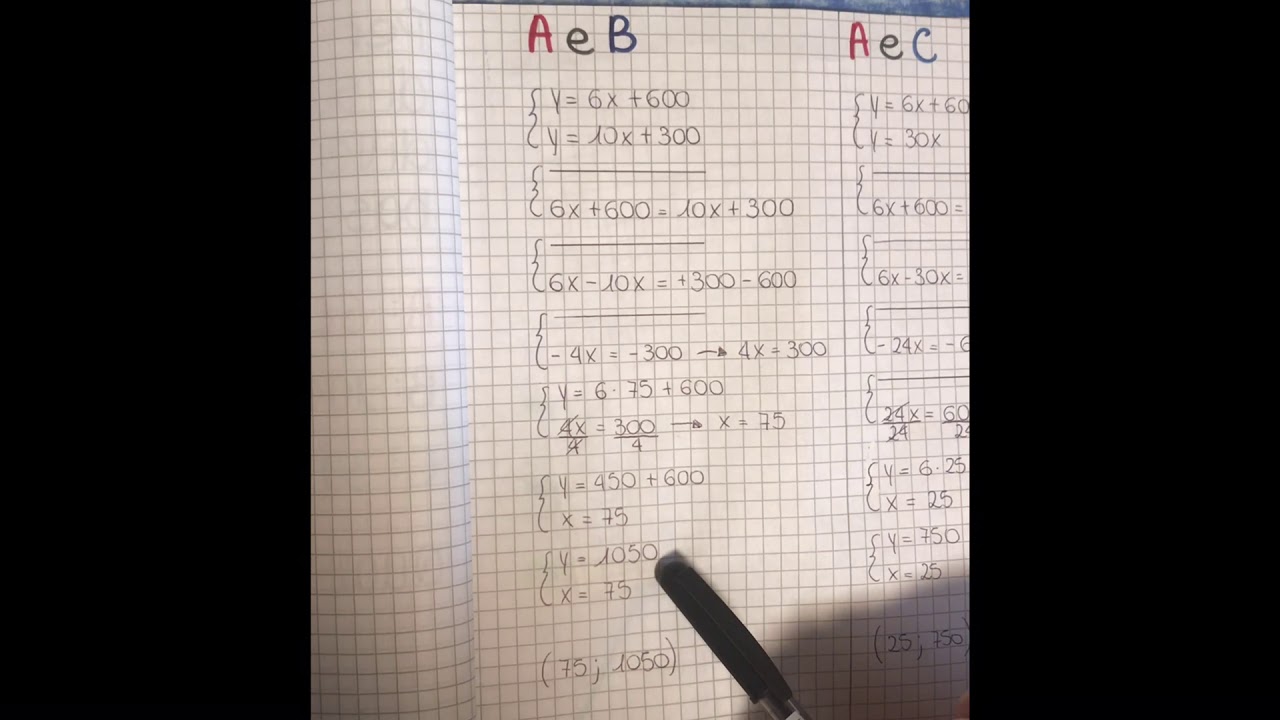 A e B
y = 6x + 600
y = 10x + 300
6x + 600 = 10x + 300
6x - 10x = +300 - 600
- 4x = - 300 → 4x = 300
y = 6 · 75 + 600
4x/4 = 300/4 → x = 75
y = 450 + 600
x = 75
y = 1050
x = 75
(75; 1050)
A e C
y = 6x + 60
y = 30x
6x + 600 =
6x - 30x =
- 24x = - 6
24x/24 = 60/24
y = 6 · 25
x = 25
y = 750
x = 25
(25; 750)